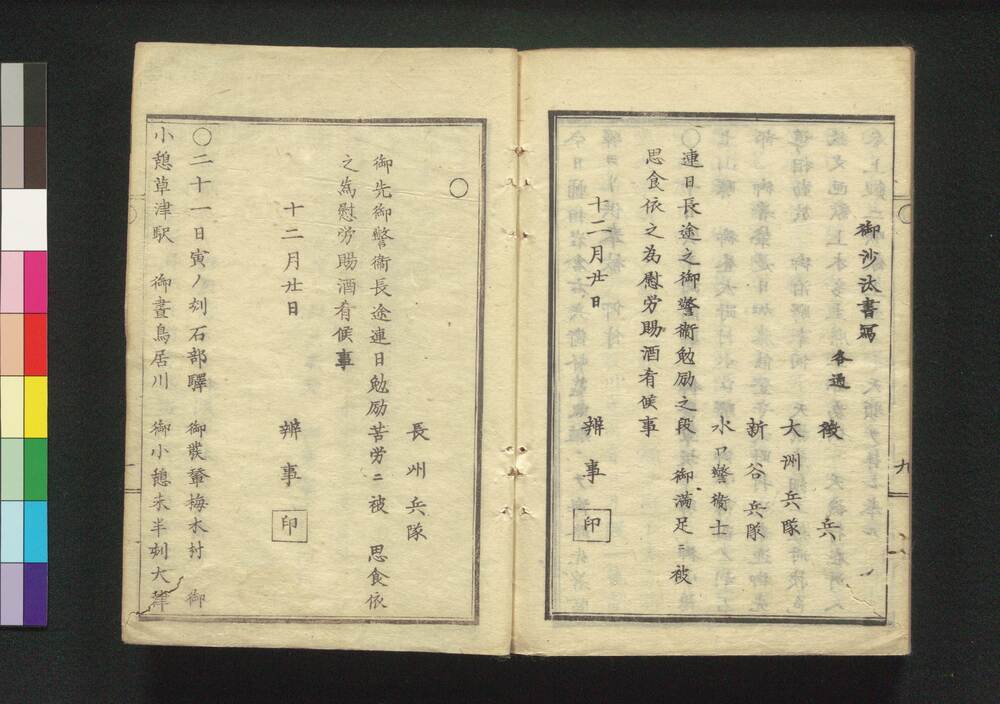 御沙汰書寫 各通
徴兵
大洲兵隊
新谷兵隊
水口警衛士
〇連日長途之御警衛勉励之段 御満足ニ被
思食依之為慰労賜酒肴候事
十二月廿日
辨事 印
九
〇
長州兵隊
御先御警衛長途連日勉励苦労ニ被 思食依
之為慰労賜酒肴候事
十二月廿日
辨事 印
〇二十一日寅ノ刻石部驛 御發輦梅木村 御
小憩草津駅 御晝鳥居川 御小憩未半刻大津